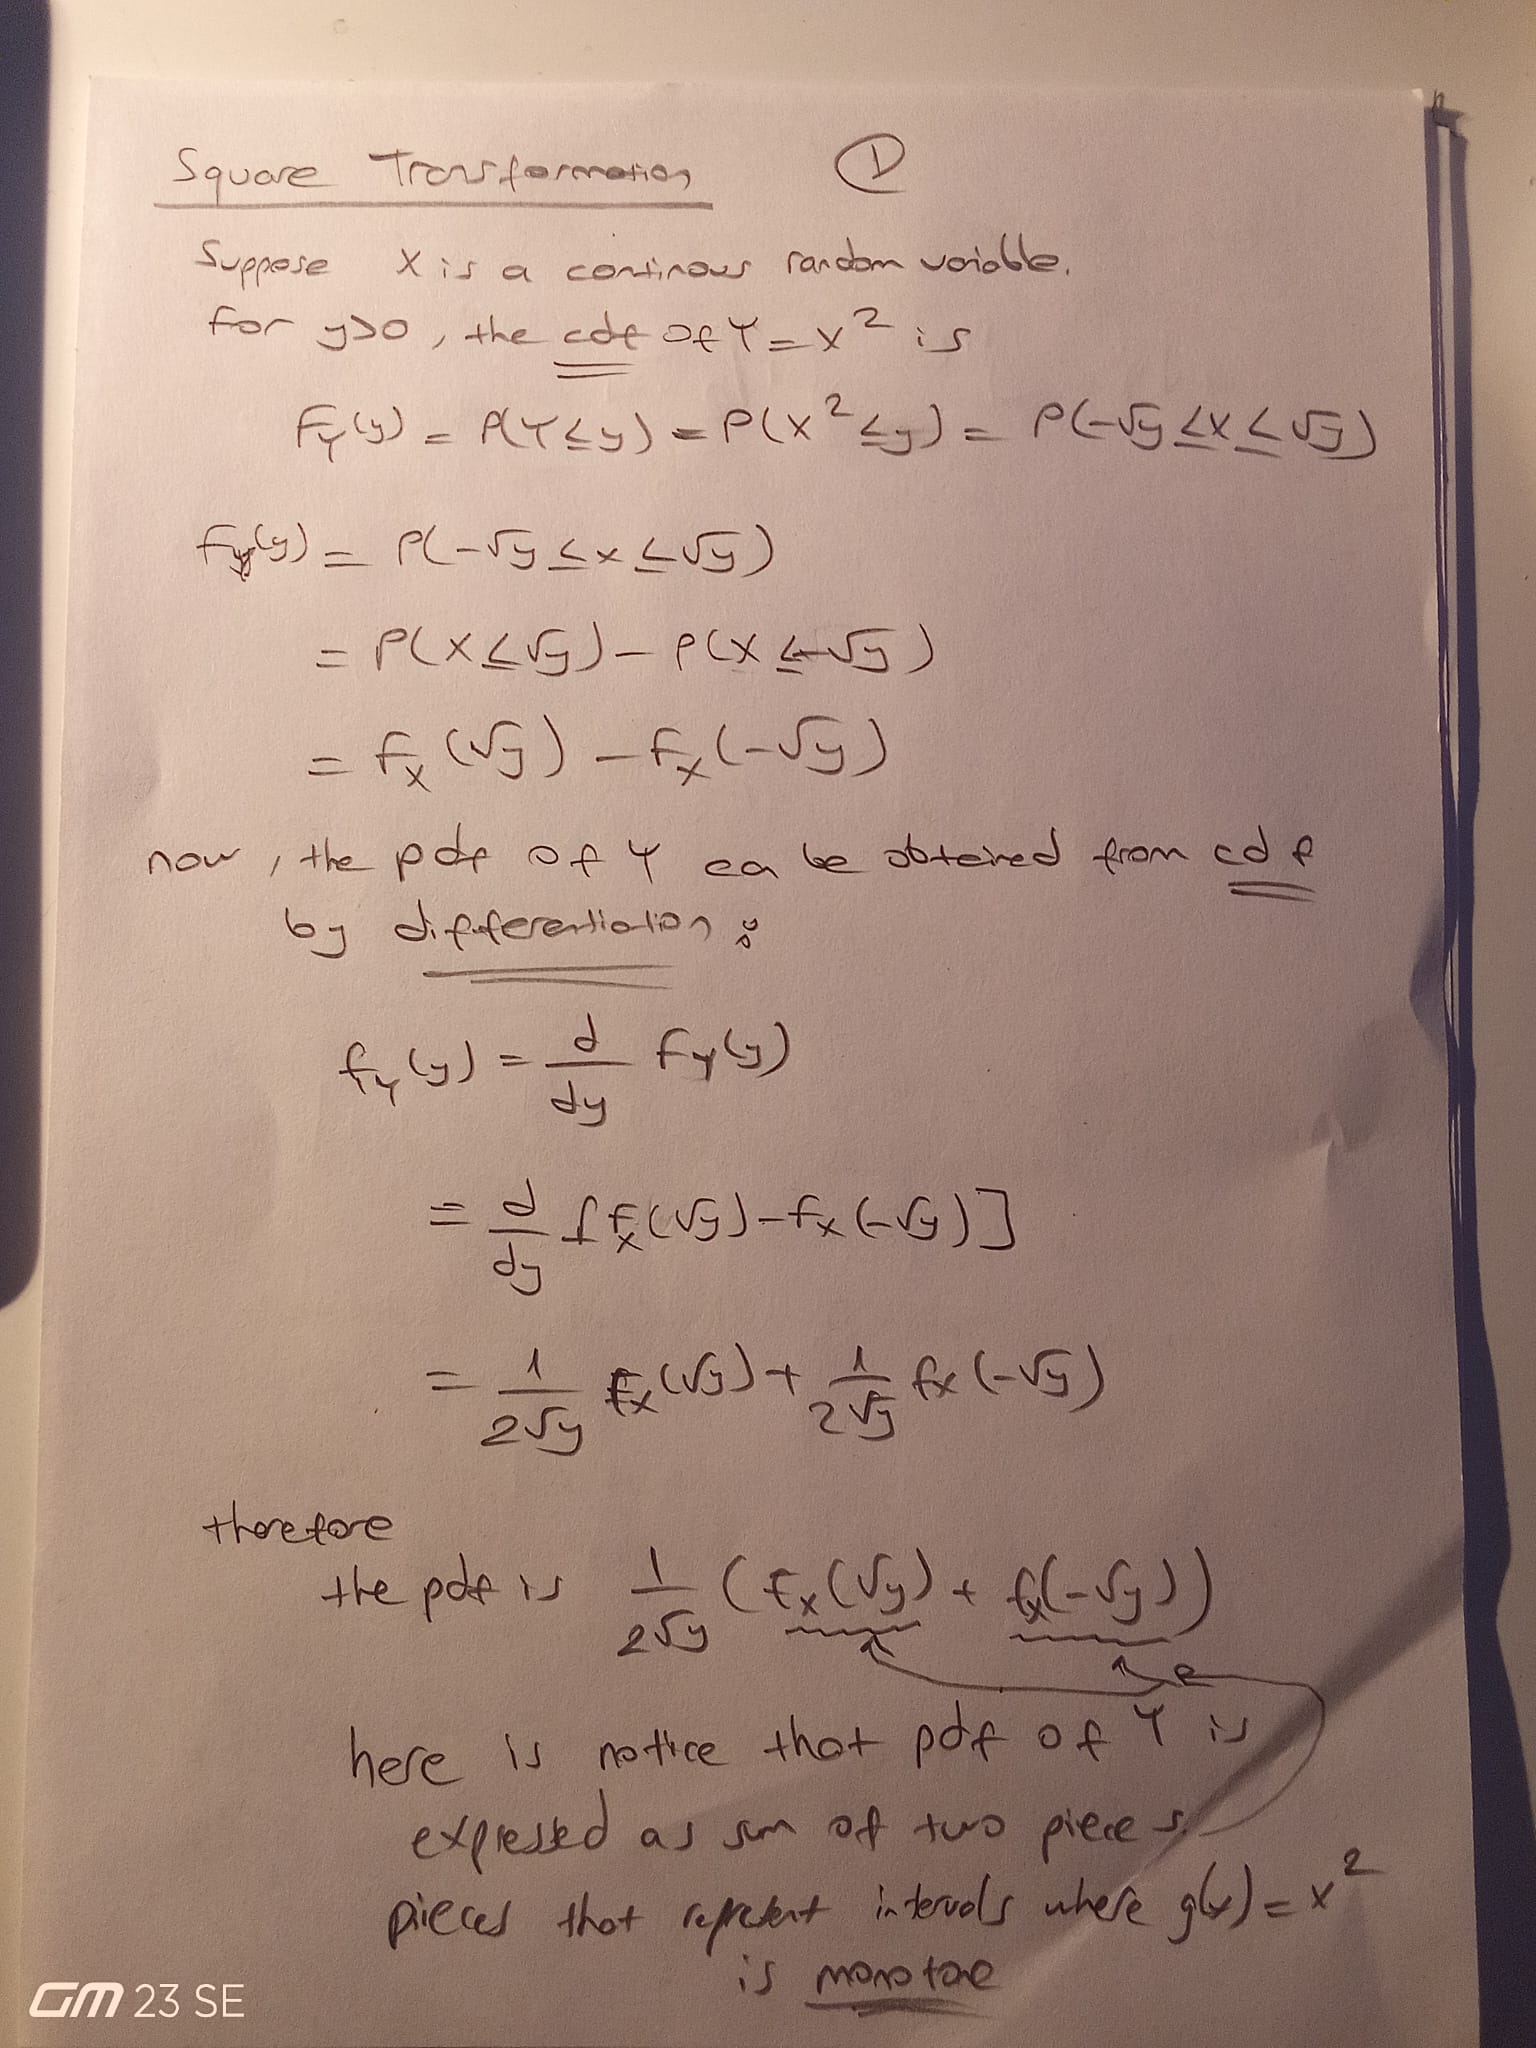 Square Transformation ①
Suppose X is a continous random variable.
for y>0, the cdf of Y=X² is
F_Y(y) = P(Y≤y) = P(X²≤y) = P(-√y ≤X≤ √y)
F_Y(y) = P(-√y ≤x≤ √y)
= P(X≤√y) - P(X≤-√y)
= F_X(√y) - F_X(-√y)
now, the pdf of Y ca be obtained from cdf
by differentiation:
f_Y(y) = d/dy F_Y(y)
= d/dy [F_X(√y) - F_X(-√y)]
= 1/2√y f_X(√y) + 1/2√y f_X(-√y)
therefore
the pdf is 1/2√y (f_X(√y) + f_X(-√y))
here is notice that pdf of Y is
expressed as sum of two pieces.
pieces that represent intervals where g(x) = x²
is monotone
GM 23 SE